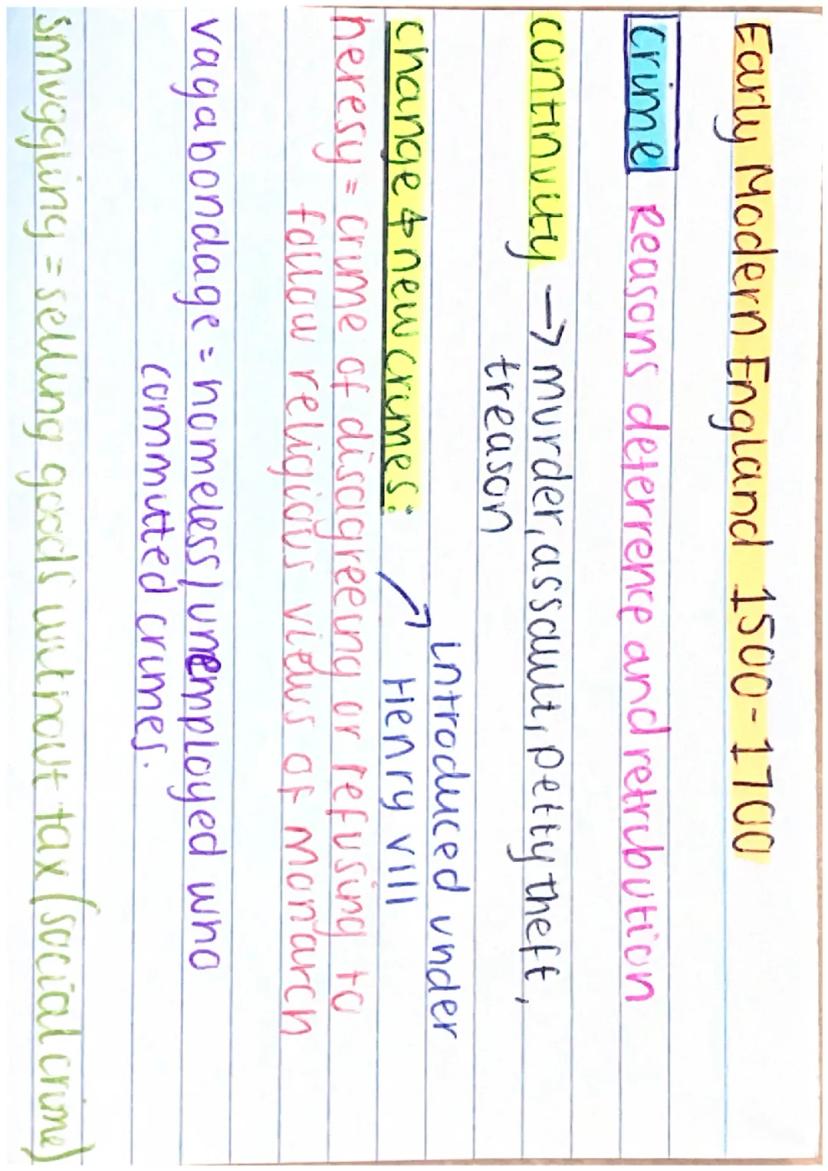 Early Modern England 1500-1700
crime Reasons deterrence and retribution
continuity → murder, assault, petty theft,
treason
introduced under
change & new crimes: → Henry VIII
heresy = crime of disagreeing or refusing to
follow religious views of monarch
vagabondage = homeless/unemployed who
committed crimes.
smuggling = selling goods without tax (social crime)